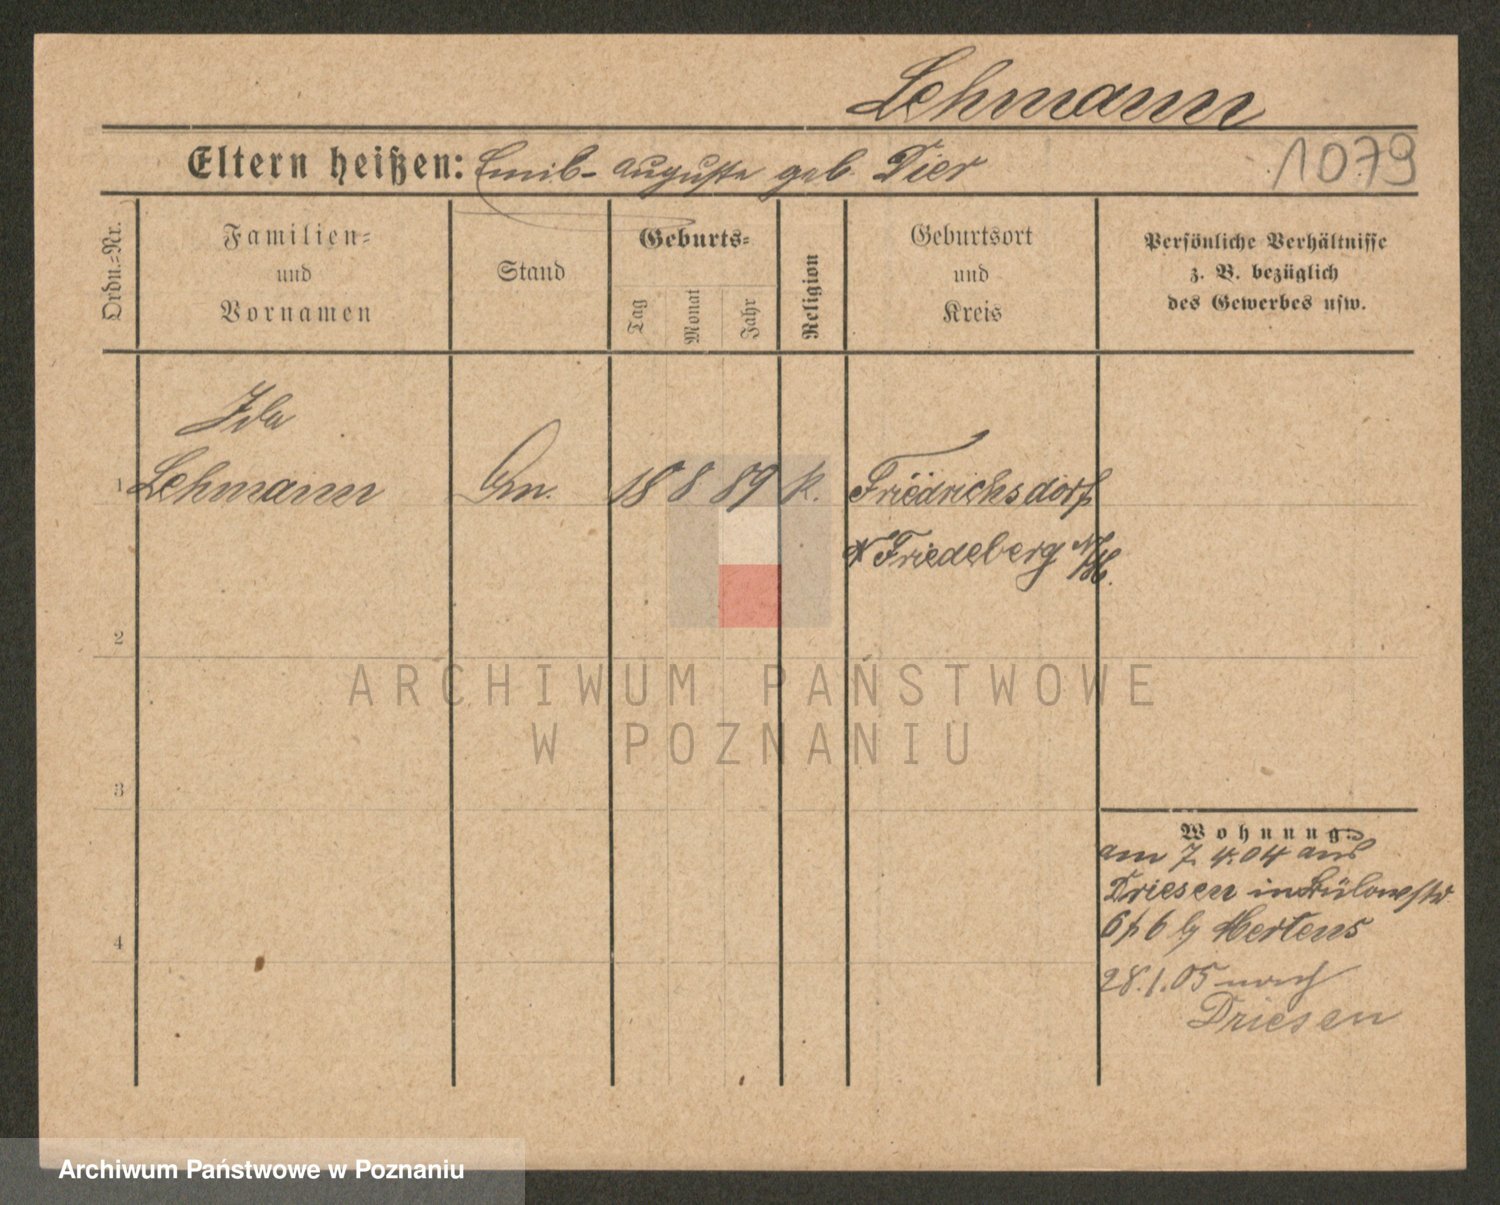 Lehmann
Eltern heißen: Emil - Auguste geb. Dier
1079
Ordn.=Nr.
Familien=
und
Vornamen
Stand
Geburts=
Tag
Monat
Jahr
Religion
Geburtsort
und
Kreis
Persönliche Verhältnisse
z. B. bezüglich
des Gewerbes usw.
Ida
1 Lehmann 18 8 89 k. Friedrichsdorf
Friedeberg N/M.
2
ARCHIWUM PAŃSTWOWE
W POZNANIU
3
Wohnung:
am 7. 4. 04 aus
Driesen in Bülowstr
6 b/ Mertens
4
28.1.05 nach
Driesen
Archiwum Państwowe w Poznaniu